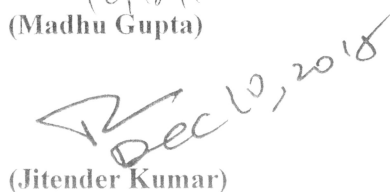 (Madhu Gupta)
Dec 10, 2018
(Jitender Kumar)